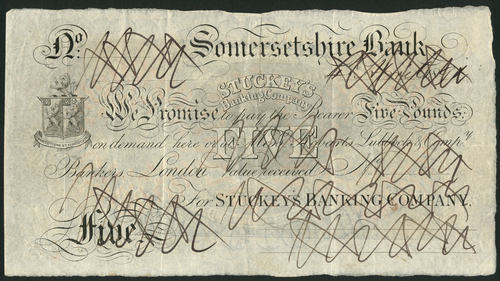 No. Somersetshire Bank
STUCKEY'S
Banking Company
We Promise to pay the Bearer Five Pounds
on demand here or at Mess.rs Robarts Lubbock & Comp.y
FIVE
Bankers London Value received
For STUCKEYS BANKING COMPANY.
Five